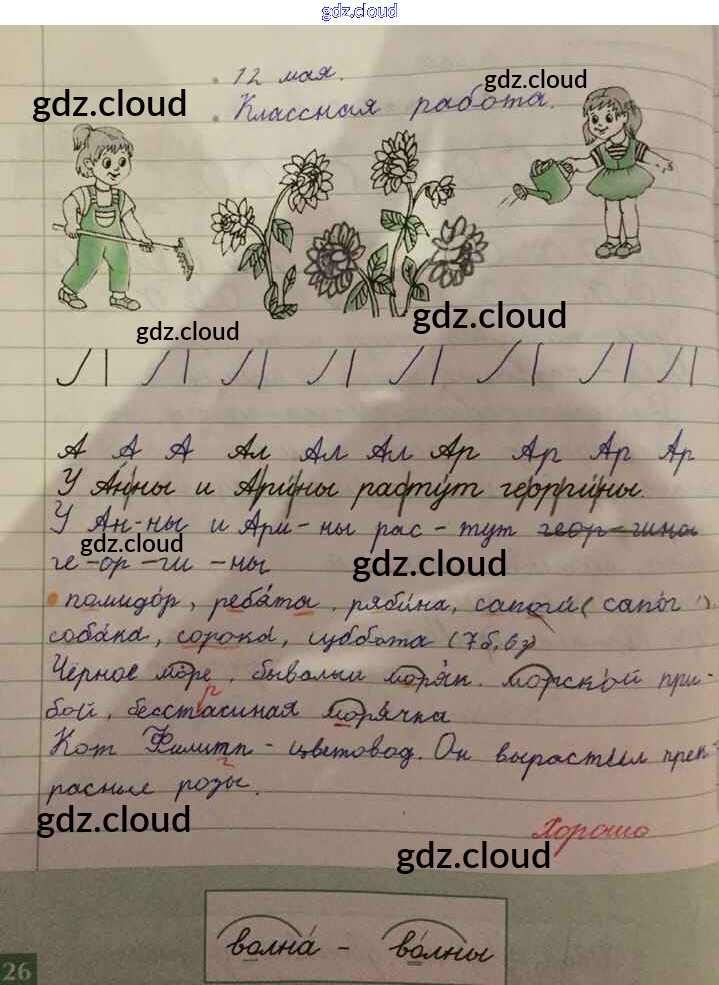 gdz.cloud
12 мая.
gdz.cloud
gdz.cloud
Классная работа.
gdz.cloud
gdz.cloud
А А А Ал Ал Ал Ар Ар Ар Ар
У Анны и Арины растут георгины.
У Ан-ны и Ари-ны рас-тут геор-гина
gdz.cloud
ге-ор-ги-ны
gdz.cloud
помидор, ребята, рябина, сапоги (сапог),
собака, сорока, суббота (7б, 6з)
Черное море, бывалый моряк, морской при-
бой, бесстрашная морячка
Кот Филипп - цветовод. Он вырастил прек-
расные розы.
gdz.cloud
Хорошо
gdz.cloud
волна́ - во́лны
26